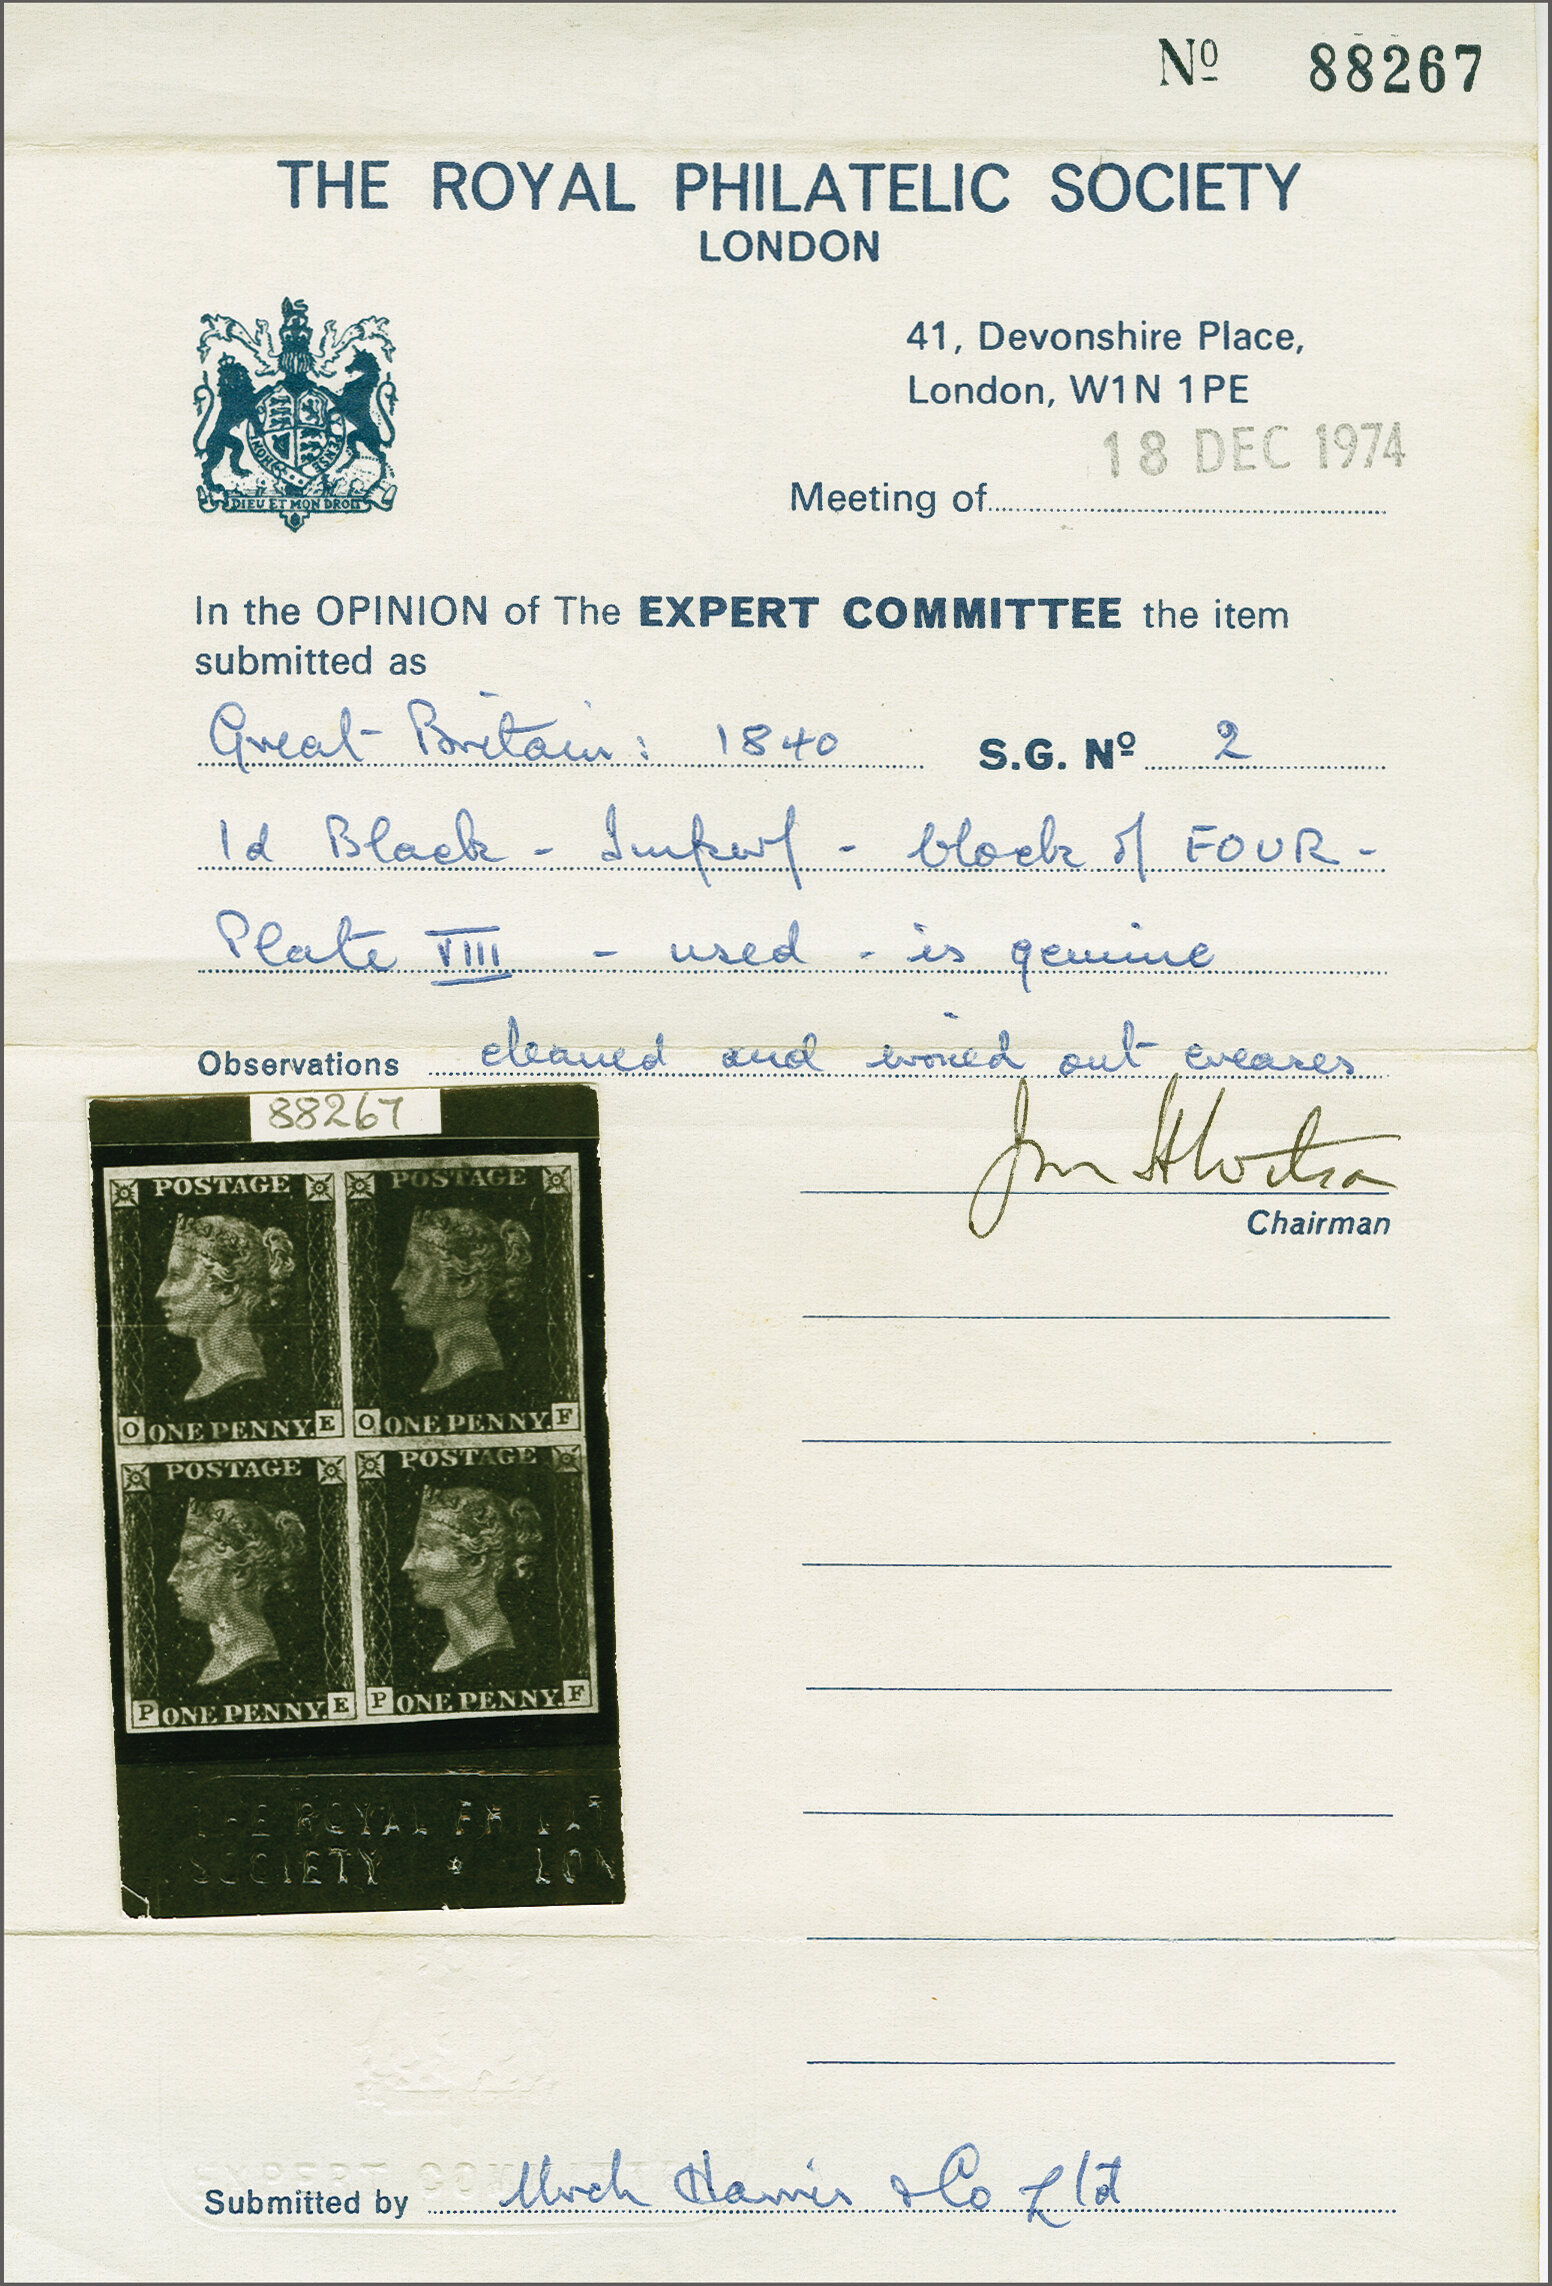 Nº 88267
THE ROYAL PHILATELIC SOCIETY
LONDON
41, Devonshire Place,
London, W1N 1PE
18 DEC 1974
Meeting of
DIEU ET MON DROIT
In the OPINION of The EXPERT COMMITTEE the item
submitted as
Great Britain: 1840 S.G. Nº 2
1d Black - Imperf - block of FOUR -
Plate VIII - used - is genuine
Observations cleaned and ironed out creases
Chairman
88267
POSTAGE POSTAGE
O ONE PENNY. E O ONE PENNY. F
POSTAGE POSTAGE
P ONE PENNY. E P ONE PENNY. F
ROYAL
SOCIETY * LON
EXPERT
Submitted by Harris & Co Ltd